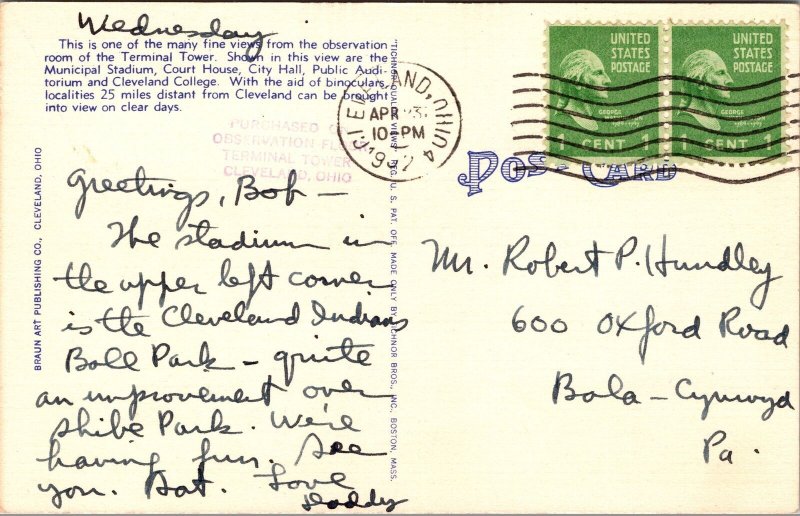 Wednesday
This is one of the many fine views from the observation
room of the Terminal Tower. Shown in this view are the
Municipal Stadium, Court House, City Hall, Public Audi-
torium and Cleveland College. With the aid of binoculars,
localities 25 miles distant from Cleveland can be brought
into view on clear days.
PURCHASED ON
OBSERVATION FLOOR
TERMINAL TOWER
CLEVELAND, OHIO
CLEVELAND, OHIO
APR 23
10 PM
1947
UNITED
STATES
POSTAGE
GEORGE
WASHINGTON
1 CENT 1
UNITED
STATES
POSTAGE
GEORGE
WASHINGTON
1 CENT 1
POST CARD
BRAUN ART PUBLISHING CO., CLEVELAND, OHIO
REG. U. S. PAT. OFF. MADE ONLY BY TICHNOR BROS., INC., BOSTON, MASS.
Greetings, Bob –
The stadium in
the upper left corner
is the Cleveland Indians
Ball Park – quite
an improvement over
Shibe Park. We're
having fun. See
you. Sat. Love
Daddy
Mr. Robert P. Hundley
600 Oxford Road
Bala-Cynwyd
Pa.